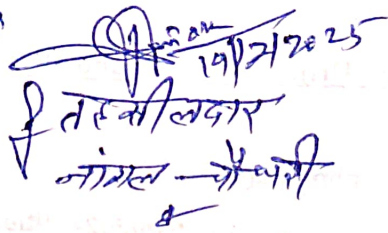 19/2/2025
तहसीलदार
नांगल चौधरी